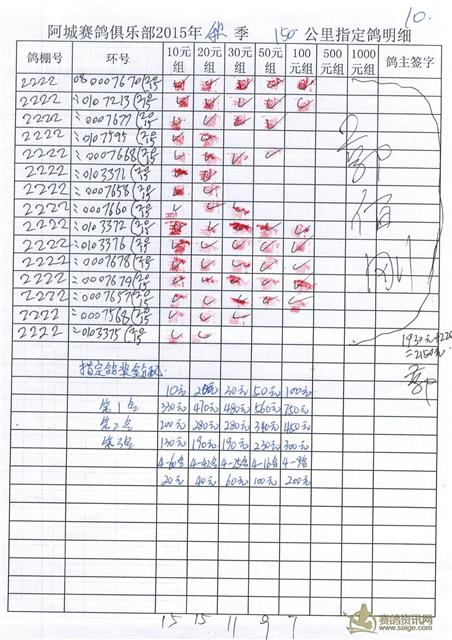 10.
阿城赛鸽俱乐部2015年 秋 季 150 公里指定鸽明细
鸽棚号 环号 10元组 20元组 30元组 50元组 100元组 500元组 1000元组 鸽主签字
2222 08 0007670 (2015
2222 〃 0107213 (2015
2222 〃 0007677 (2015
2222 〃 0107595 (2015
2222 〃 0007668 (2015
2222 〃 0103371 (2015
2222 〃 0007658 (2015
2222 〃 0007660 (2015
2222 〃 0103372 (2015
2222 〃 0103376 (2015
2222 〃 0007678 (2015
2222 〃 0007679 (2015
2222 〃 0007657 (2015
2222 〃 0007568 (2015
2222 〃 0103375 (2015
1930元+220
=2150元
指定鸽奖金分配
10元 20元 30元 50元 100元
第1名 330元 470元 480元 560元 750元
第2名 200元 280元 280元 340元 450元
第3名 130元 190元 190元 230元 300元
20元 40元 60元 100元 200元
15 15 11 9 7
赛鸽资讯网
www.saige.com